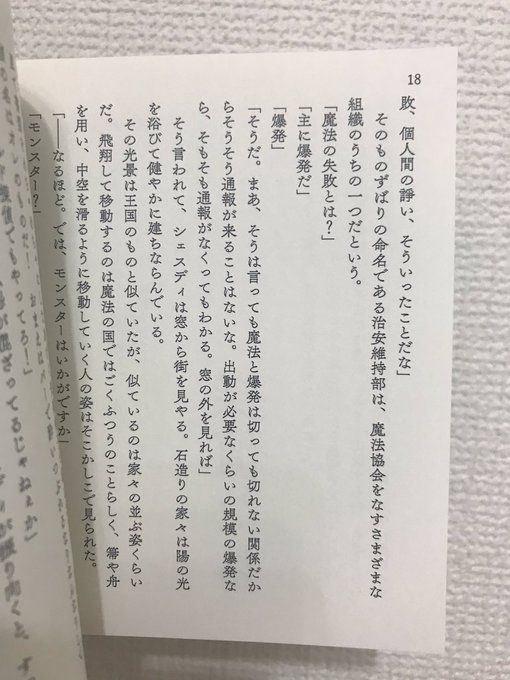 18
敗、個人間の諍い、そういったことだな」
そのものずばりの命名である治安維持部は、魔法協会をなすさまざまな
組織のうちの一つだという。
「魔法の失敗とは？」
「主に爆発だ」
「爆発」
「そうだ。まあ、そうは言っても魔法と爆発は切っても切れない関係だか
らそうそう通報が来ることはないな。出動が必要なくらいの規模の爆発な
ら、そもそも通報がなくってもわかる。窓の外を見れば」
そう言われて、シェスディは窓から街を見やる。石造りの家々は陽の光
を浴びて健やかに建ちならんでいる。
その光景は王国のものと似ていたが、似ているのは家々の並ぶ姿くらい
だ。飛翔して移動するのは魔法の国ではごくふつうのことらしく、箒や舟
を用い、中空を滑るように移動していく人の姿はそこかしこで見られた。
「――なるほど。では、モンスターはいかがですか」
「モンスター？」